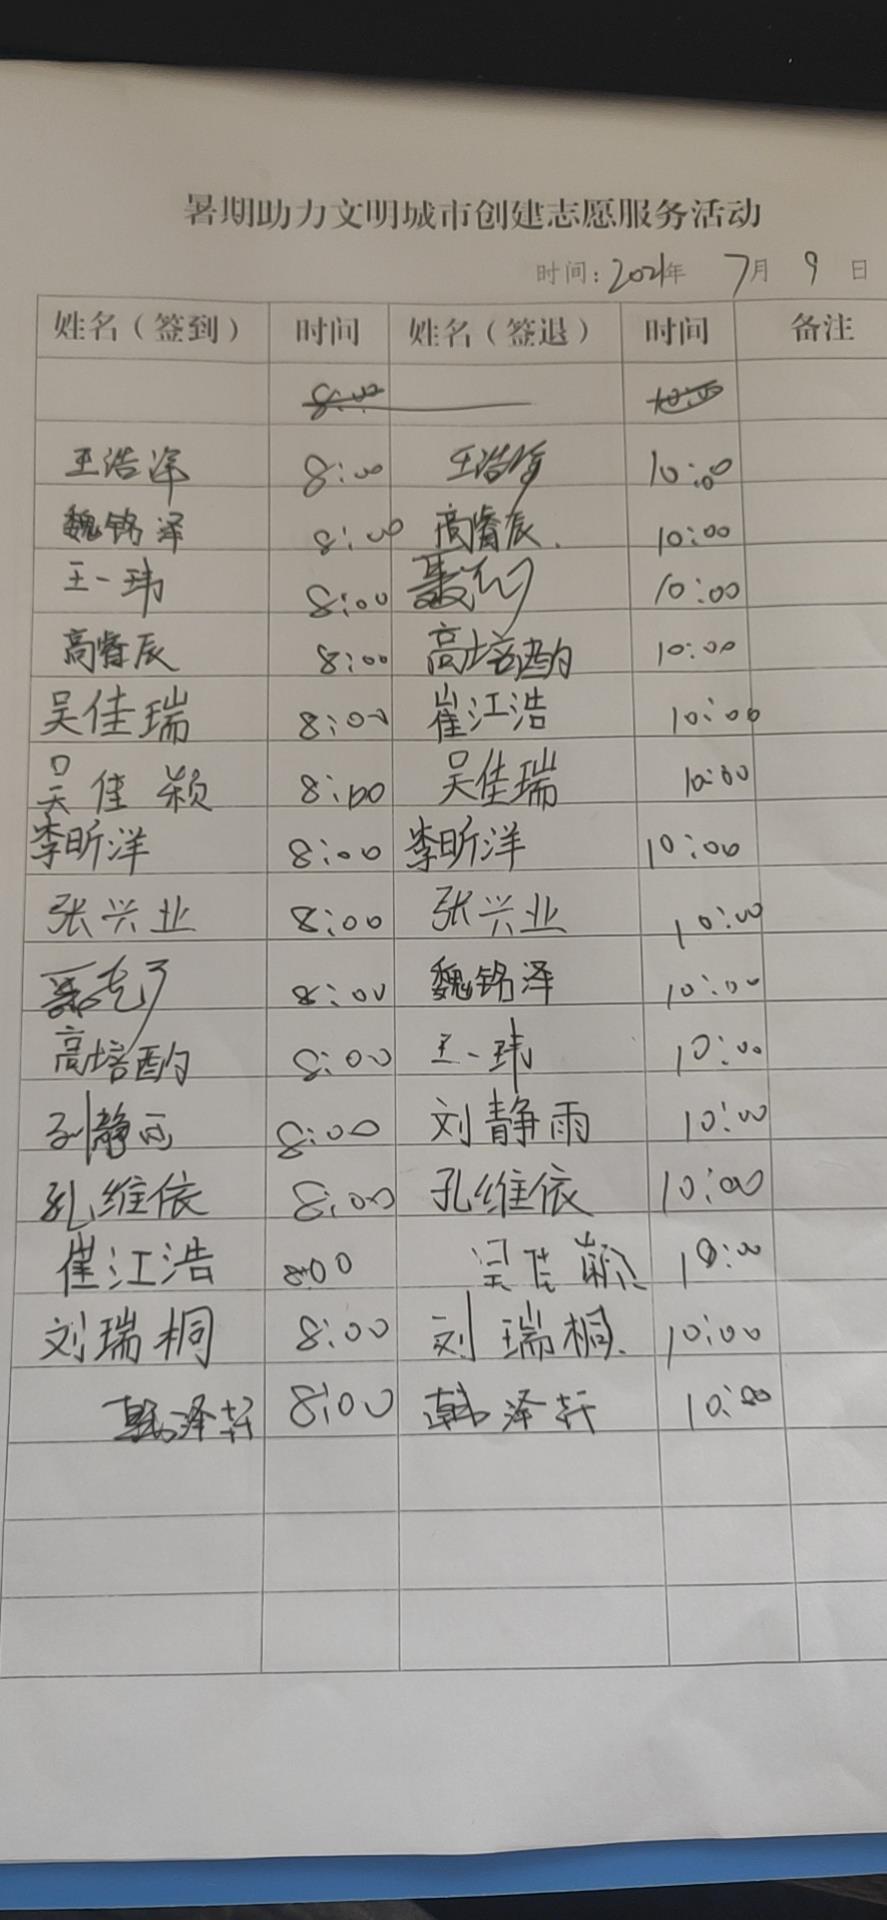 暑期助力文明城市创建志愿服务活动
时间：2021年 7月 9日
姓名（签到） 时间 姓名（签退） 时间 备注
8:00
王浩 8:00 王浩 10:00
魏铭泽 8:00 高睿辰 10:00
王一玮 8:00 聂 10:00
高睿辰 8:00 高培酌 10:00
吴佳瑞 8:00 崔江浩 10:00
吴佳颖 8:00 吴佳瑞 10:00
李昕洋 8:00 李昕洋 10:00
张兴业 8:00 张兴业 10:00
聂 8:00 魏铭泽 10:00
高培酌 8:00 王一玮 10:00
刘静雨 8:00 刘静雨 10:00
孔维依 8:00 孔维依 10:00
崔江浩 8:00 吴佳颖 10:00
刘瑞桐 8:00 刘瑞桐 10:00
韩泽轩 8:00 韩泽轩 10:00